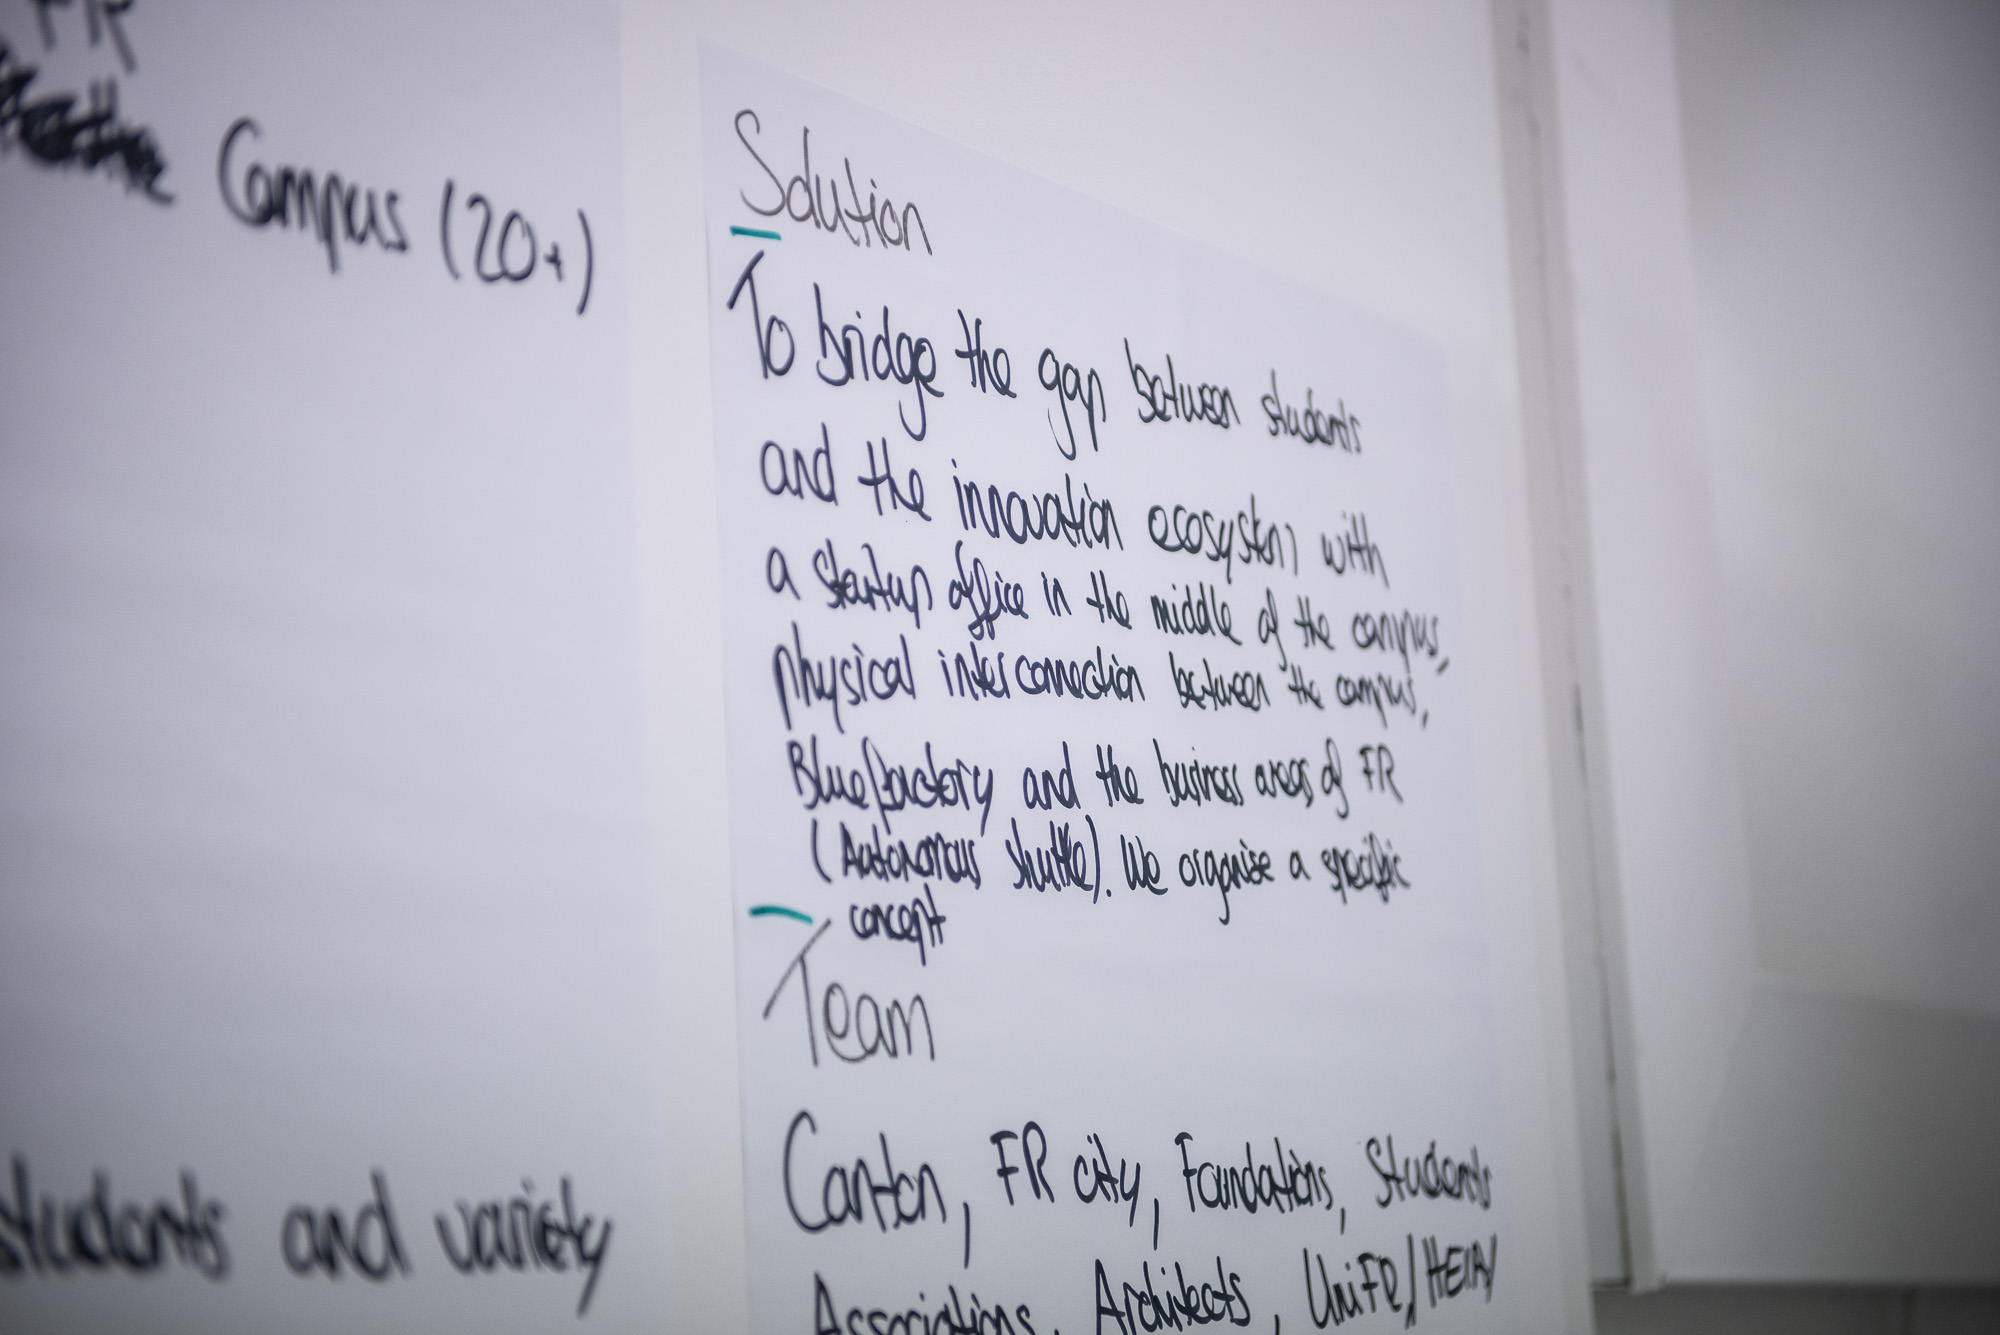 FR
Campus (20+)
students and variety
Solution
To bridge the gap between students
and the innovation ecosystem with
a startup office in the middle of the campus,
physical interconnection between the campus,
Bluefactory and the business areas of FR
(Autonomous shuttle). We organise a specific
concept
Team
Canton, FR city, Foundations, Students
Associations, Architects, UniFR/